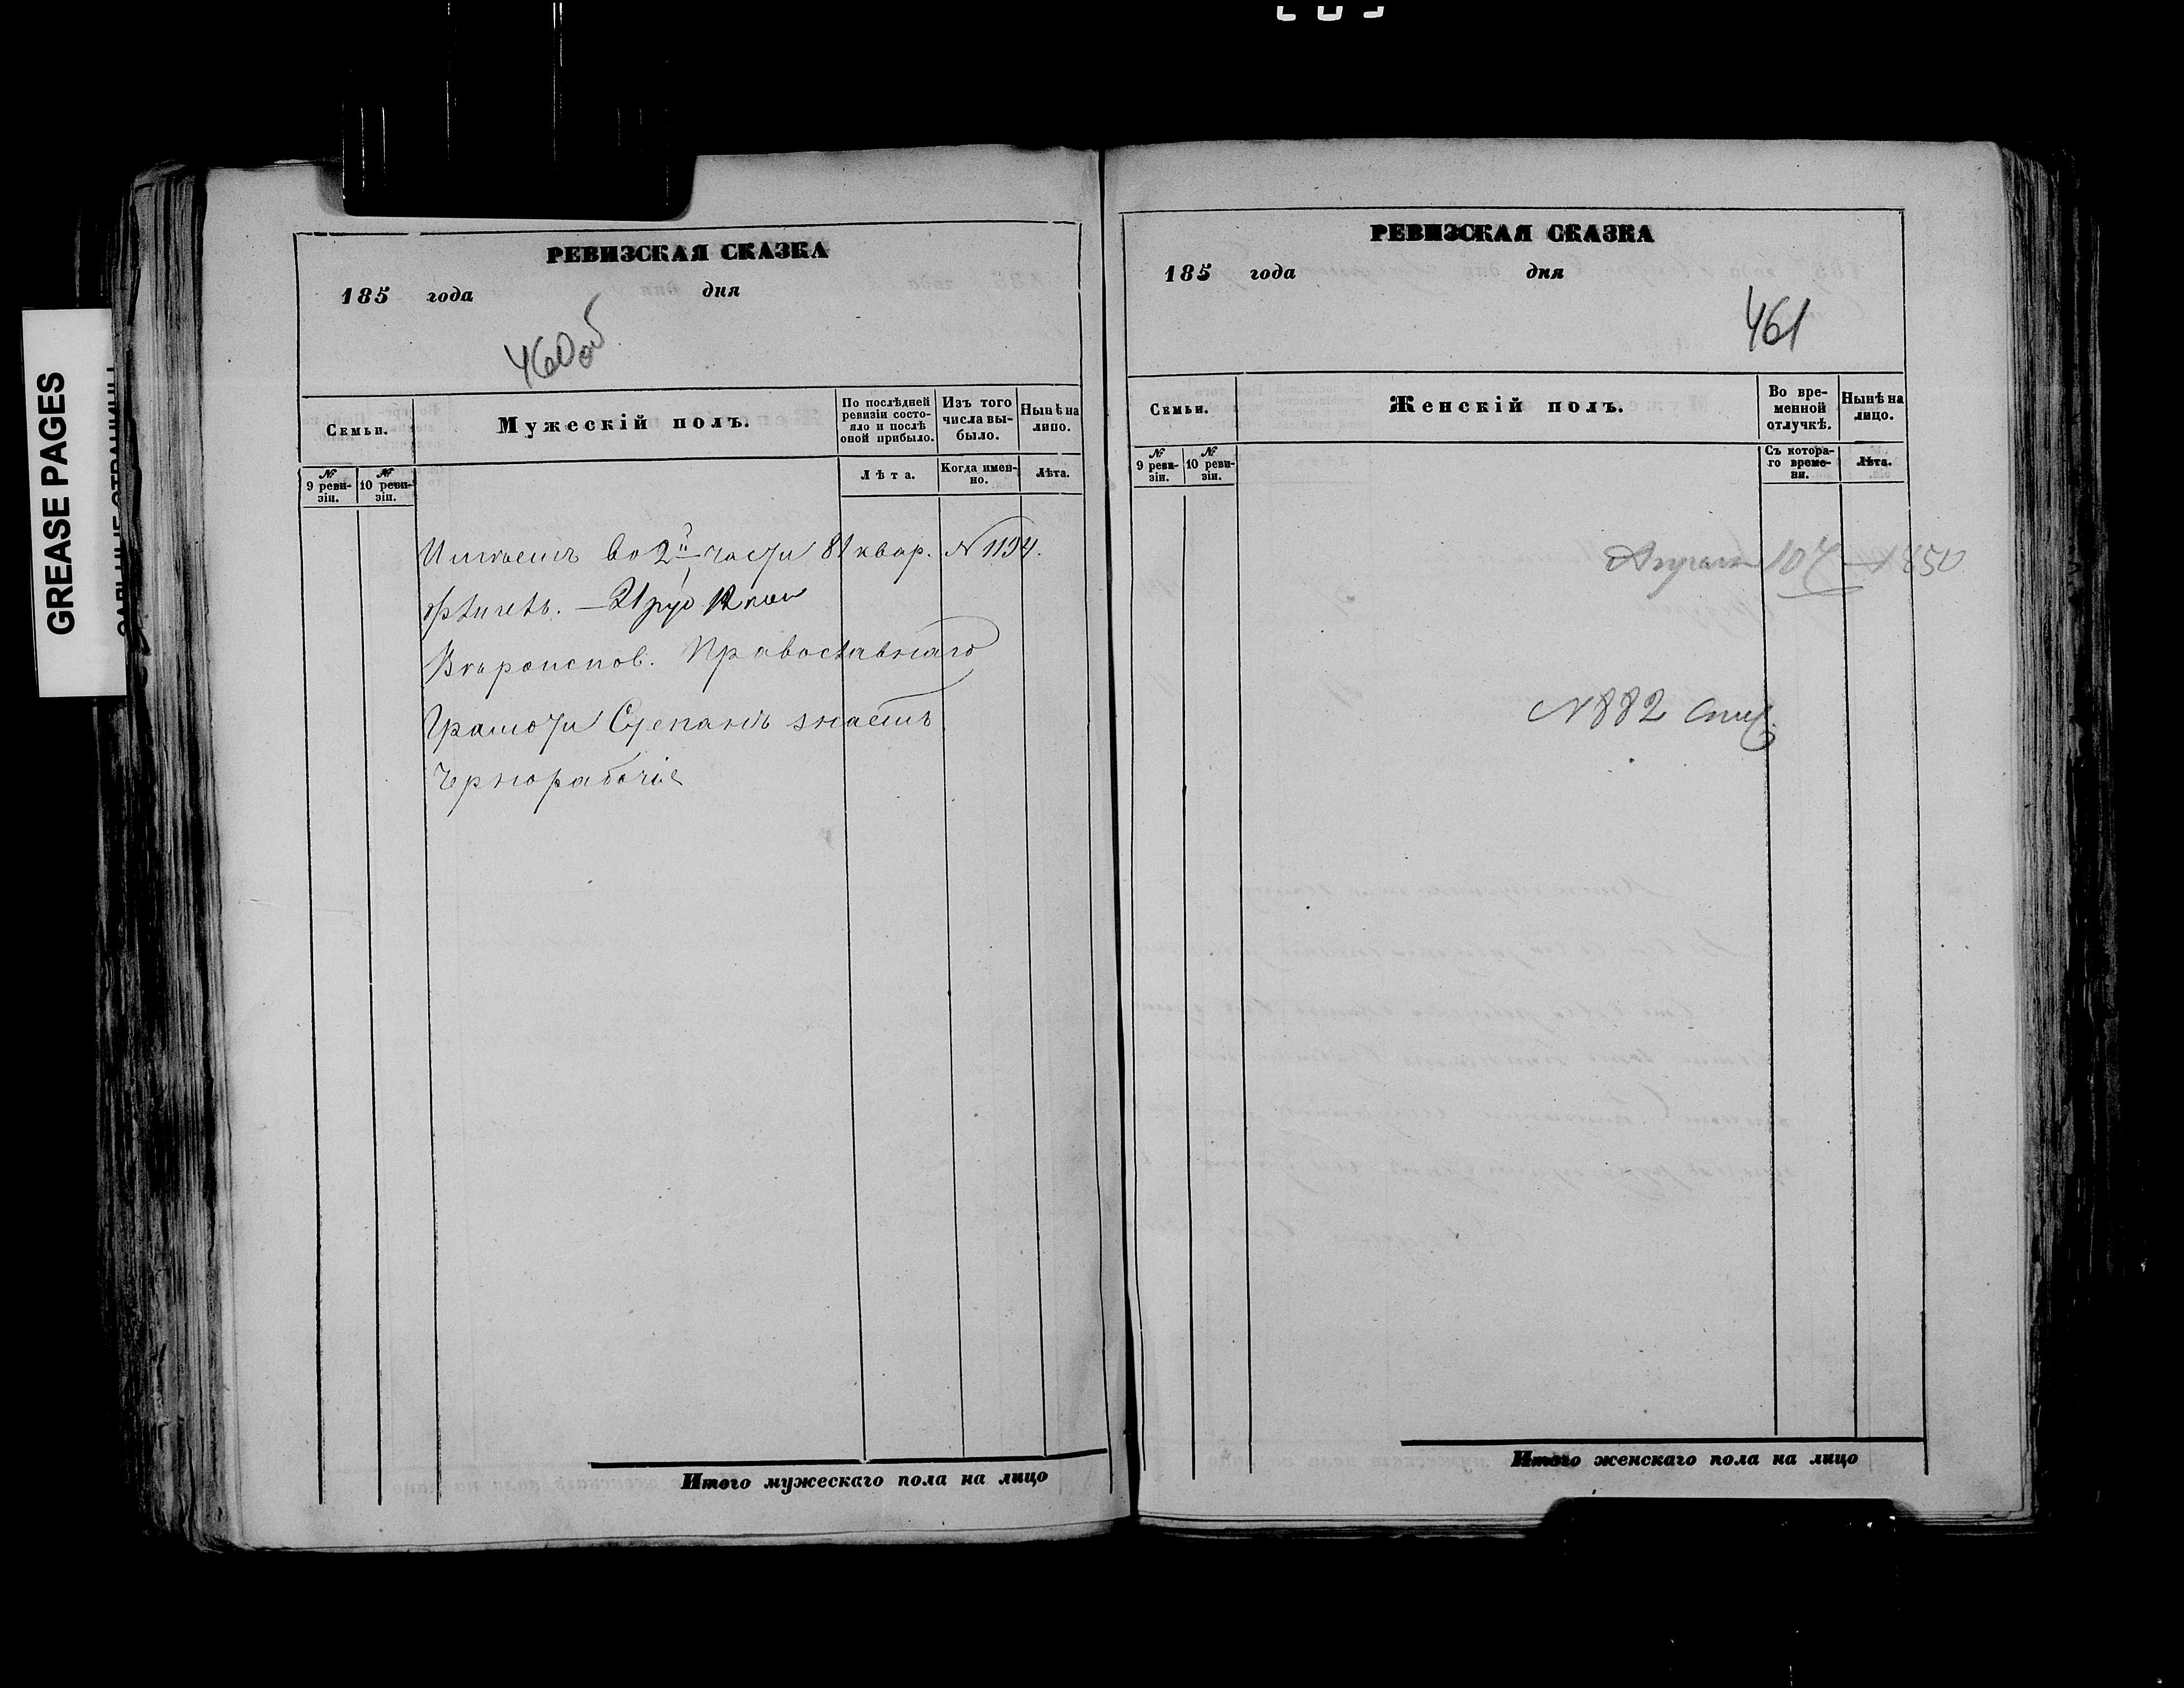 GREASE PAGES
РЕВИЗСКАЯ СКАЗКА
185 года дня
460об
Семьи.
Мужескій полъ.
По послѣдней ревизіи состояло и послѣ оной прибыло.
Изъ того числа выбыло.
Нынѣ на лицо.
№ 9 ревизіи.
№ 10 ревизіи.
Лѣта.
Когда именно.
Лѣта.
Имѣетъ во 2й части 81 квар. N 1194.
Вѣроиспов. Православнаго
Грамоти Степанъ знаетъ
Чернорабочіе
Итого мужескаго пола на лицо
РЕВИЗСКАЯ СКАЗКА
185 года дня
461
Семьи.
Женскій полъ.
Во временной отлучкѣ.
Нынѣ на лицо.
№ 9 ревизіи.
№ 10 ревизіи.
Съ котораго времени.
Лѣта.
1850
N 882
Итого женскаго пола на лицо